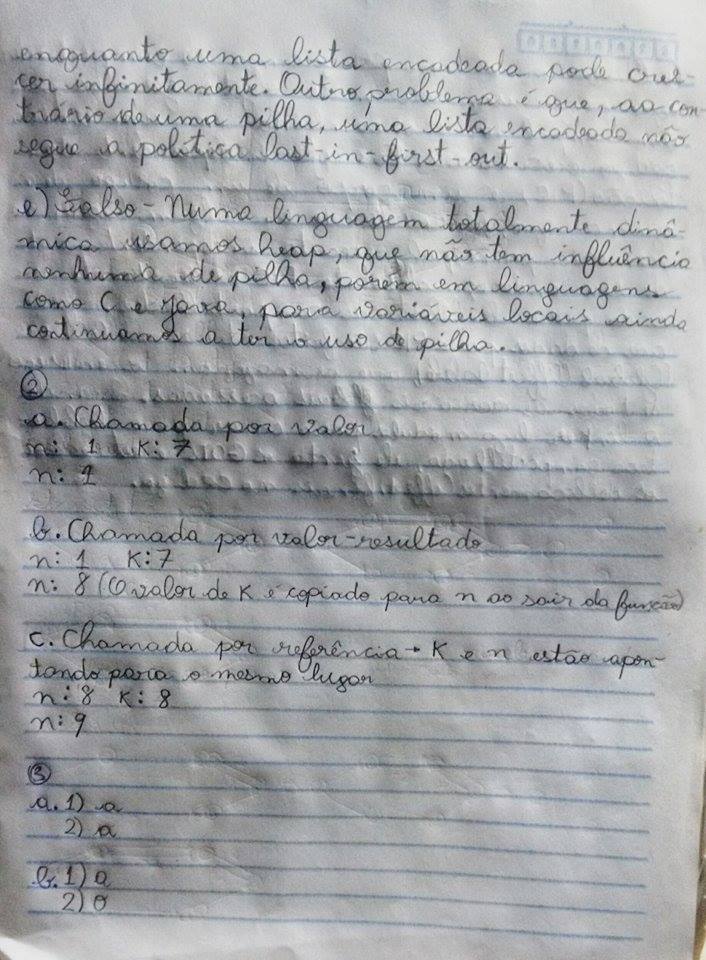 enquanto uma lista encadeada pode cres-
cer infinitamente. Outro problema é que, ao con-
trário de uma pilha, uma lista encadeada não
segue a política last-in-first-out.
e) Falso - Numa linguagem totalmente dinâ-
mica usamos heap, que não tem influência
nenhuma de pilha, porém em linguagens
como C e Java, para variáveis locais ainda
continuamos a ter o uso de pilha.
2
a. Chamada por valor
n: 1 K: 7
n: 1
b. Chamada por valor-resultado
n: 1 K: 7
n: 8 (O valor de K é copiado para n ao sair da função)
c. Chamada por referência - K e n estão apon-
tando para o mesmo lugar
n: 8 K: 8
n: 9
3
a. 1) a
2) a
b. 1) a
2)